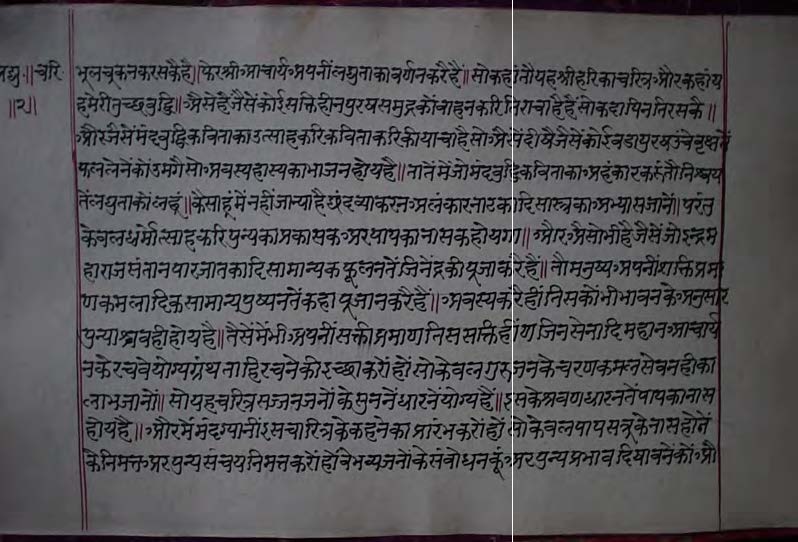 प्रद्यु॰॥चरि॰
॥२॥
भूलचूकनकरसकैहै॥फेरश्रीआचार्यअपनीलघुताकावर्णनकरैहै॥सोकहांतौयहश्रीहरिकाचरित्रऔरकहांय
हमरीतुच्छबुद्धि॥अैसेहैजैसेंकोईसक्तिहीनपुरषसमुद्रकोंबाहनकरितिराचाहेहैंसोकदापिनतिरसकै॥
औरजैसेंमंदबुद्धिकविताकाउत्साहकरिकविताकरिकीयाचाहैसोअैसेंदीषैजैसेंकोईबडापुरषउंचेवृक्षतें
फललेनेंकोंउमगैसोअवस्यहास्यकाभाजनहोयहै॥तातेंमेंजोमंदबुद्धिकविताकाअहंकारकरुंतौनिश्चय
तेंलघुताकोंलहुं॥कैसाहूंमेंनहीजान्याहैछंदव्याकरनअलंकारनाटकादिसास्त्रकाअभ्यासजानें॥परंतु
केवलधर्मोत्साहकरिपुन्यकाप्रकासकअरपापकानासकहोयगा॥औरअैसोभीहैजैसेंजोइन्द्रम
हाराजसंतानपारजातकादिसामान्यकफूलनतेंजिनेंद्रकीपूजाकरैहैं॥तौमनुष्यअपनीशक्तिप्रमा
णकमलादिकसामान्यपुष्पनतेंकहापूजानकरैहैं॥अवस्यकरैहींतिसकोंभीभावनकेअनुसार
पुन्याश्रवहीहोयहै॥तैसेंमेंभीअपनीसक्तीप्रमाणनिससक्तिहींणजिनसेनादिमहानआचार्य
नकेरचवेयोग्यग्रंथताहिरचनेकीइच्छाकरोंहोंसोकेवलगुरुजनकेचरणकमलसेवनहीका
लाभजानों॥सोयहचरित्रसज्जनजनोंकेसुननेंधारनेंयोग्यहैं॥इसकेश्रवणधारनतेंपापकानास
होयहै॥औरमेंमंदग्यानींइसचारित्रकेकहनकाप्रारंभकरोंहोंसोकेवलपापसत्रूकेनासहोनें
केनिमत्तअरपुन्यसंचयनिमत्तकरोंहोंवेभव्यजनोंकेसंबोधनकूंअरपुन्यप्रभावदिषावनेंकोंऔ